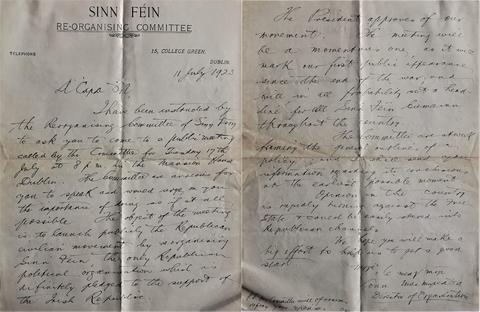 SINN FÉIN
RE-ORGANISING COMMITTEE
TELEPHONE
15, COLLEGE GREEN,
DUBLIN.
11 July 1923
A Cara
I have been instructed by
the Reorganising Committee of Sinn Fein
to ask you to come to a public meeting
called by the Committee for Tuesday 17th
July at 8 p.m. in the Mansion House
Dublin. The Committee are anxious for
you to speak and would urge on you
the importance of doing so if at all
possible. The object of the meeting
is to launch publicly the Republican
civilian movement by reorganising
Sinn Fein the only Republican
political organisation which is
definitely pledged to the support of
the Irish Republic.
The President approves of our
movement. The meeting will
be a momentous one, as it will
mark our first public appearance
since the end of the war, and
will in all probability set a head
line for all Sinn Fein Cumann
throughout the country.
The Committee are at present
framing the outlines of a
policy and shall send you
information regarding its conclusions
at the earliest possible moment.
Opinion in the country
is rapidly rising against the Free
State & could be easily turned into
Republican channels.
We hope you will make a
big effort to help us to get a good
start.
Director of Organisation